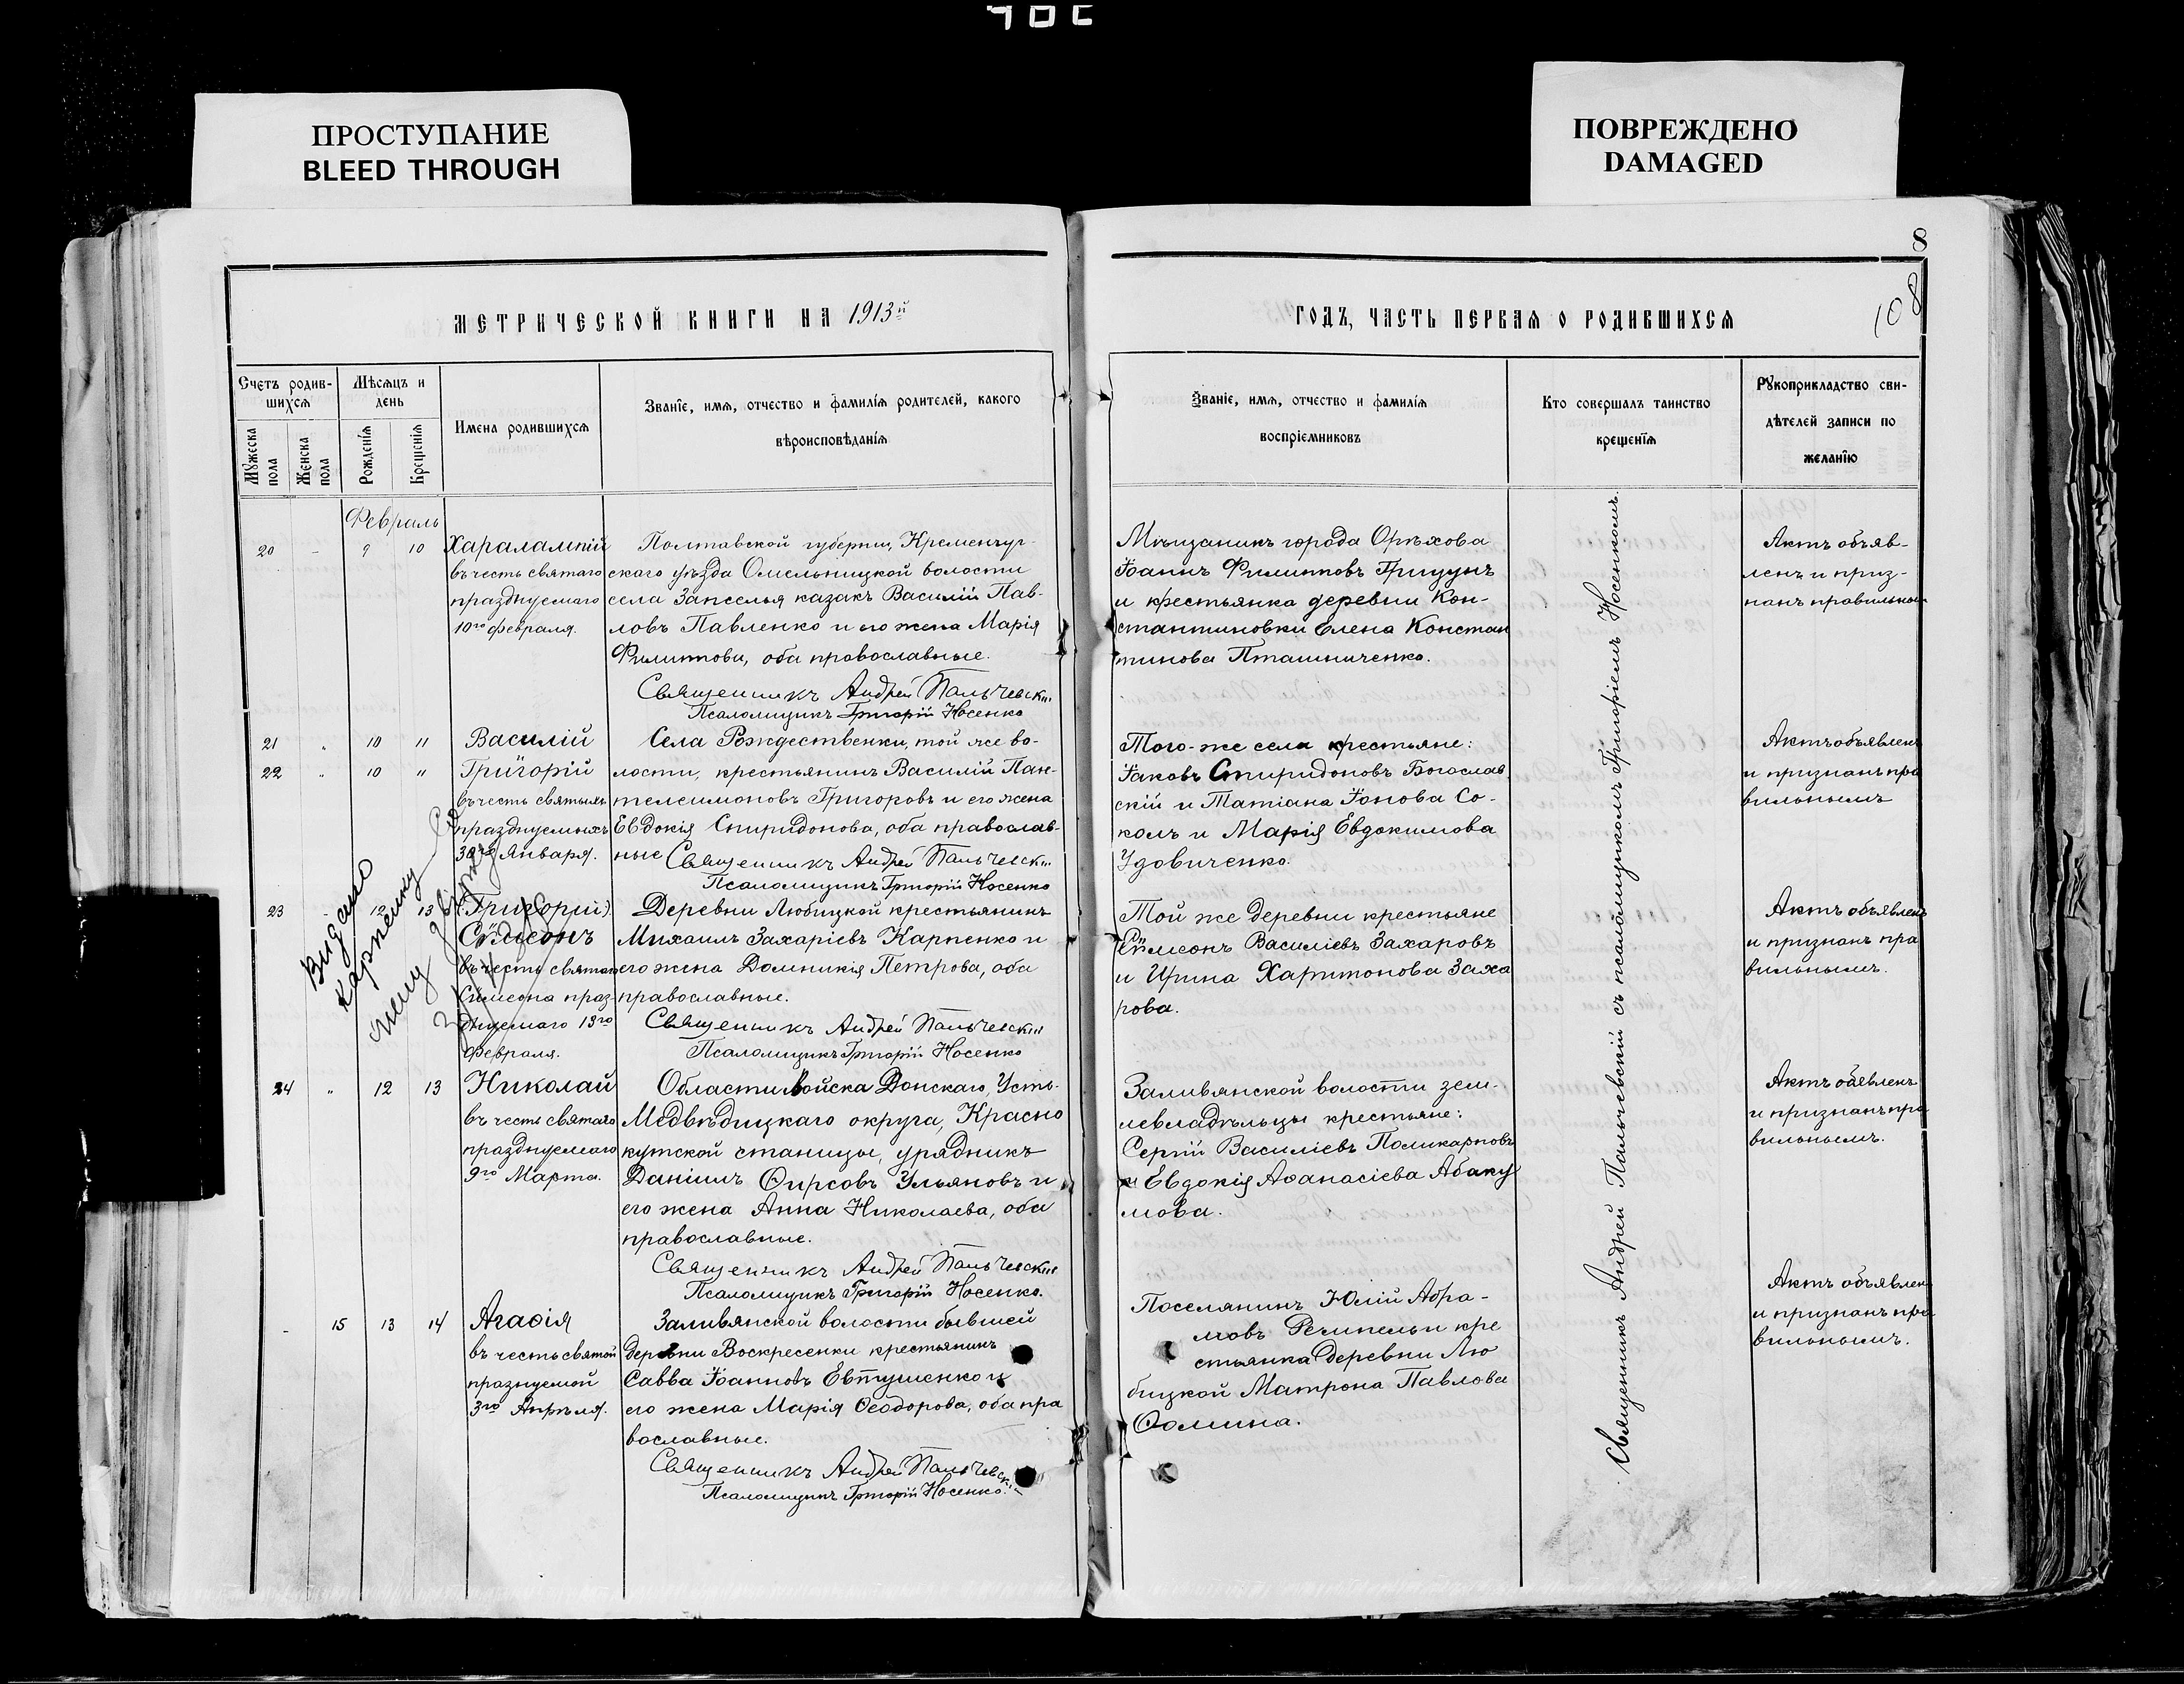 ПРОСТУПАНИЕ
BLEED THROUGH
ПОВРЕЖДЕНО
DAMAGED
8
108
МЕТРИЧЕСКОЙ КНИГИ НА 1913й
ГОДЪ, ЧАСТЬ ПЕРВАЯ О РОДИВШИХСЯ
Счетъ родив-
шихся
Мѣсяцъ и
день
Мужеска
пола
Женска
пола
Рожденія
Крещенія
Имена родившихся
Званіе, имя, отчество и фамилія родителей, какого
вѣроисповѣданія
Званіе, имя, отчество и фамилія
воспріемниковъ
Кто совершалъ таинство
крещенія
Рукоприкладство сви-
дѣтелей записи по
желанію
Февраль
20 - 9 10
Харалампій
въ честь святаго
празднуемаго
10го февраля.
Полтавской губерніи, Кременчуг-
скаго уѣзда Омельницкой волости
села Запселья казакъ Василій Пав-
ловъ Павленко и его жена Марія
Филиппова, оба православные.
Священникъ Андрей Пальчевскій
Псаломщикъ Григорій Носенко
Мѣщанинъ города Орѣхова
Іоаннъ Филипповъ Грицунъ
и крестьянка деревни Кон-
стантиновки Елена Констан
тинова Пташниченко.
Актъ объяв-
ленъ и приз-
нанъ правильнымъ
21 " 10 11
22 " 10 "
Василій
Григорій
въ честь святыхъ
празднуемыхъ
30го Января.
Села Рождественки, той же во-
лости, крестьянинъ Василій Пан-
телеимоновъ Григоровъ и его жена
Евдокія Спиридонова, оба православ-
ные
Священникъ Андрей Пальчевскій
Псаломщикъ Григорій Носенко
Того-же села крестьяне:
Іаковъ Спиридоновъ Богослав
скій и Татіана Іонова Со-
колъ и Марія Евдокимова
Удовиченко.
Актъ объявленъ
и признанъ пра
вильнымъ
23 - 12 13
(Григорій)
Сѵмеонъ
въ честь святаго
Симеона праз-
днуемаго 13го
февраля.
Видано
Карпенку
Деревни Любицкой крестьянинъ
Михаилъ Захаріевъ Карпенко и
его жена Домникія Петрова, оба
православные.
Священникъ Андрей Пальчевскій
Псаломщикъ Григорій Носенко
Той же деревни крестьяне
Сѵмеонъ Василіевъ Захаровъ
и Ирина Харитонова Заха
рова.
Актъ объявленъ
и признанъ пра
вильнымъ.
24 " 12 13
Николай
въ честь святаго
празднуемаго
9го Марта.
Области Войска Донскаго, Усть-
Медвѣдицкаго округа, Красно
кутской станицы, урядникъ
Даніилъ Ѳирсовъ Ульяновъ и
его жена Анна Николаева, оба
православные.
Священникъ Андрей Пальчевскій
Псаломщикъ Григорій Носенко.
Заливянской волости зем-
левладѣльцы крестьяне:
Сергій Василіевъ Поликарповъ
и Евдокія Аѳанасіева Абаку
мова.
Актъ обявленъ
и признанъ пра
вильнымъ.
- 15 13 14
Агаѳія
въ честь святой
празнуемой
3го Апрѣля.
Заливянской волости бывшей
деревни Воскресенки крестьянинъ
Савва Іоанновъ Евтушенко и
его жена Марія Ѳеодорова, оба пра
вославные.
Священникъ Андрей Пальчевскій
Псаломщикъ Григорій Носенко.
Поселянинъ Юлій Абра-
мовъ Ремпель и кре
стьянка деревни Лю
бицкой Матрона Павлова
Ѳомина.
Актъ объявленъ
и признанъ пра
вильнымъ.
Священникъ Андрей Пальчевскій съ псаломщикомъ Григоріемъ Носенкомъ.